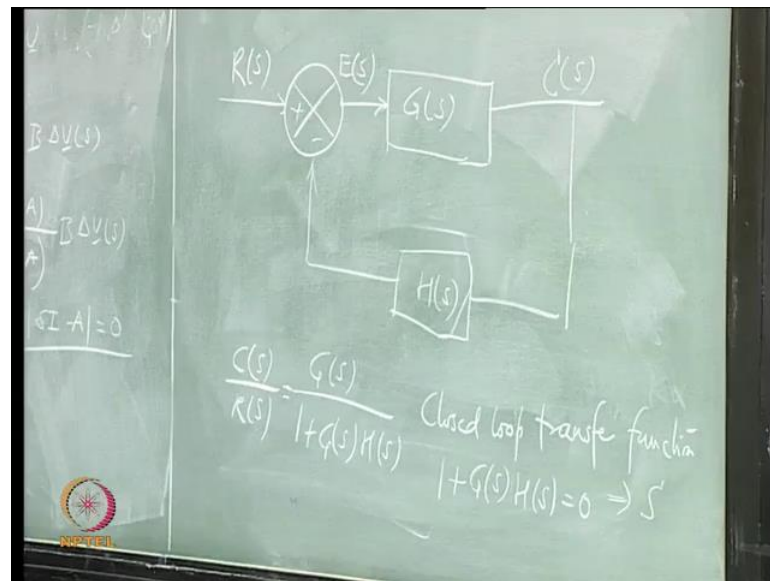 B ΔU(s)
A)
B ΔU(s)
A)
sI - A| = 0
R(s)
E(s)
C(s)
+
G(s)
-
H(s)
C(s)/R(s) = G(s)/1+G(s)H(s) Closed loop transfe function
1+G(s)H(s)=0 ⇒ S
NPTEL